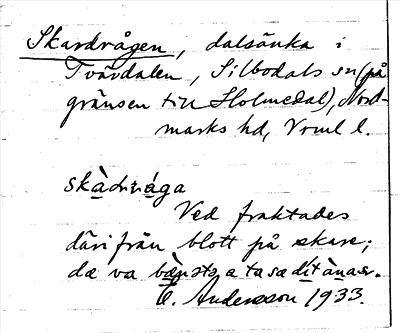 Skardrågen, dalsänka i
Tvärdalen, Silbodals sn (på
gränsen till Holmedal), Nord-
marks hd, Vrml l.
skàdråga
Ved fraktades
därifrån blott på skare;
dæ va
C. Andersson 1933.